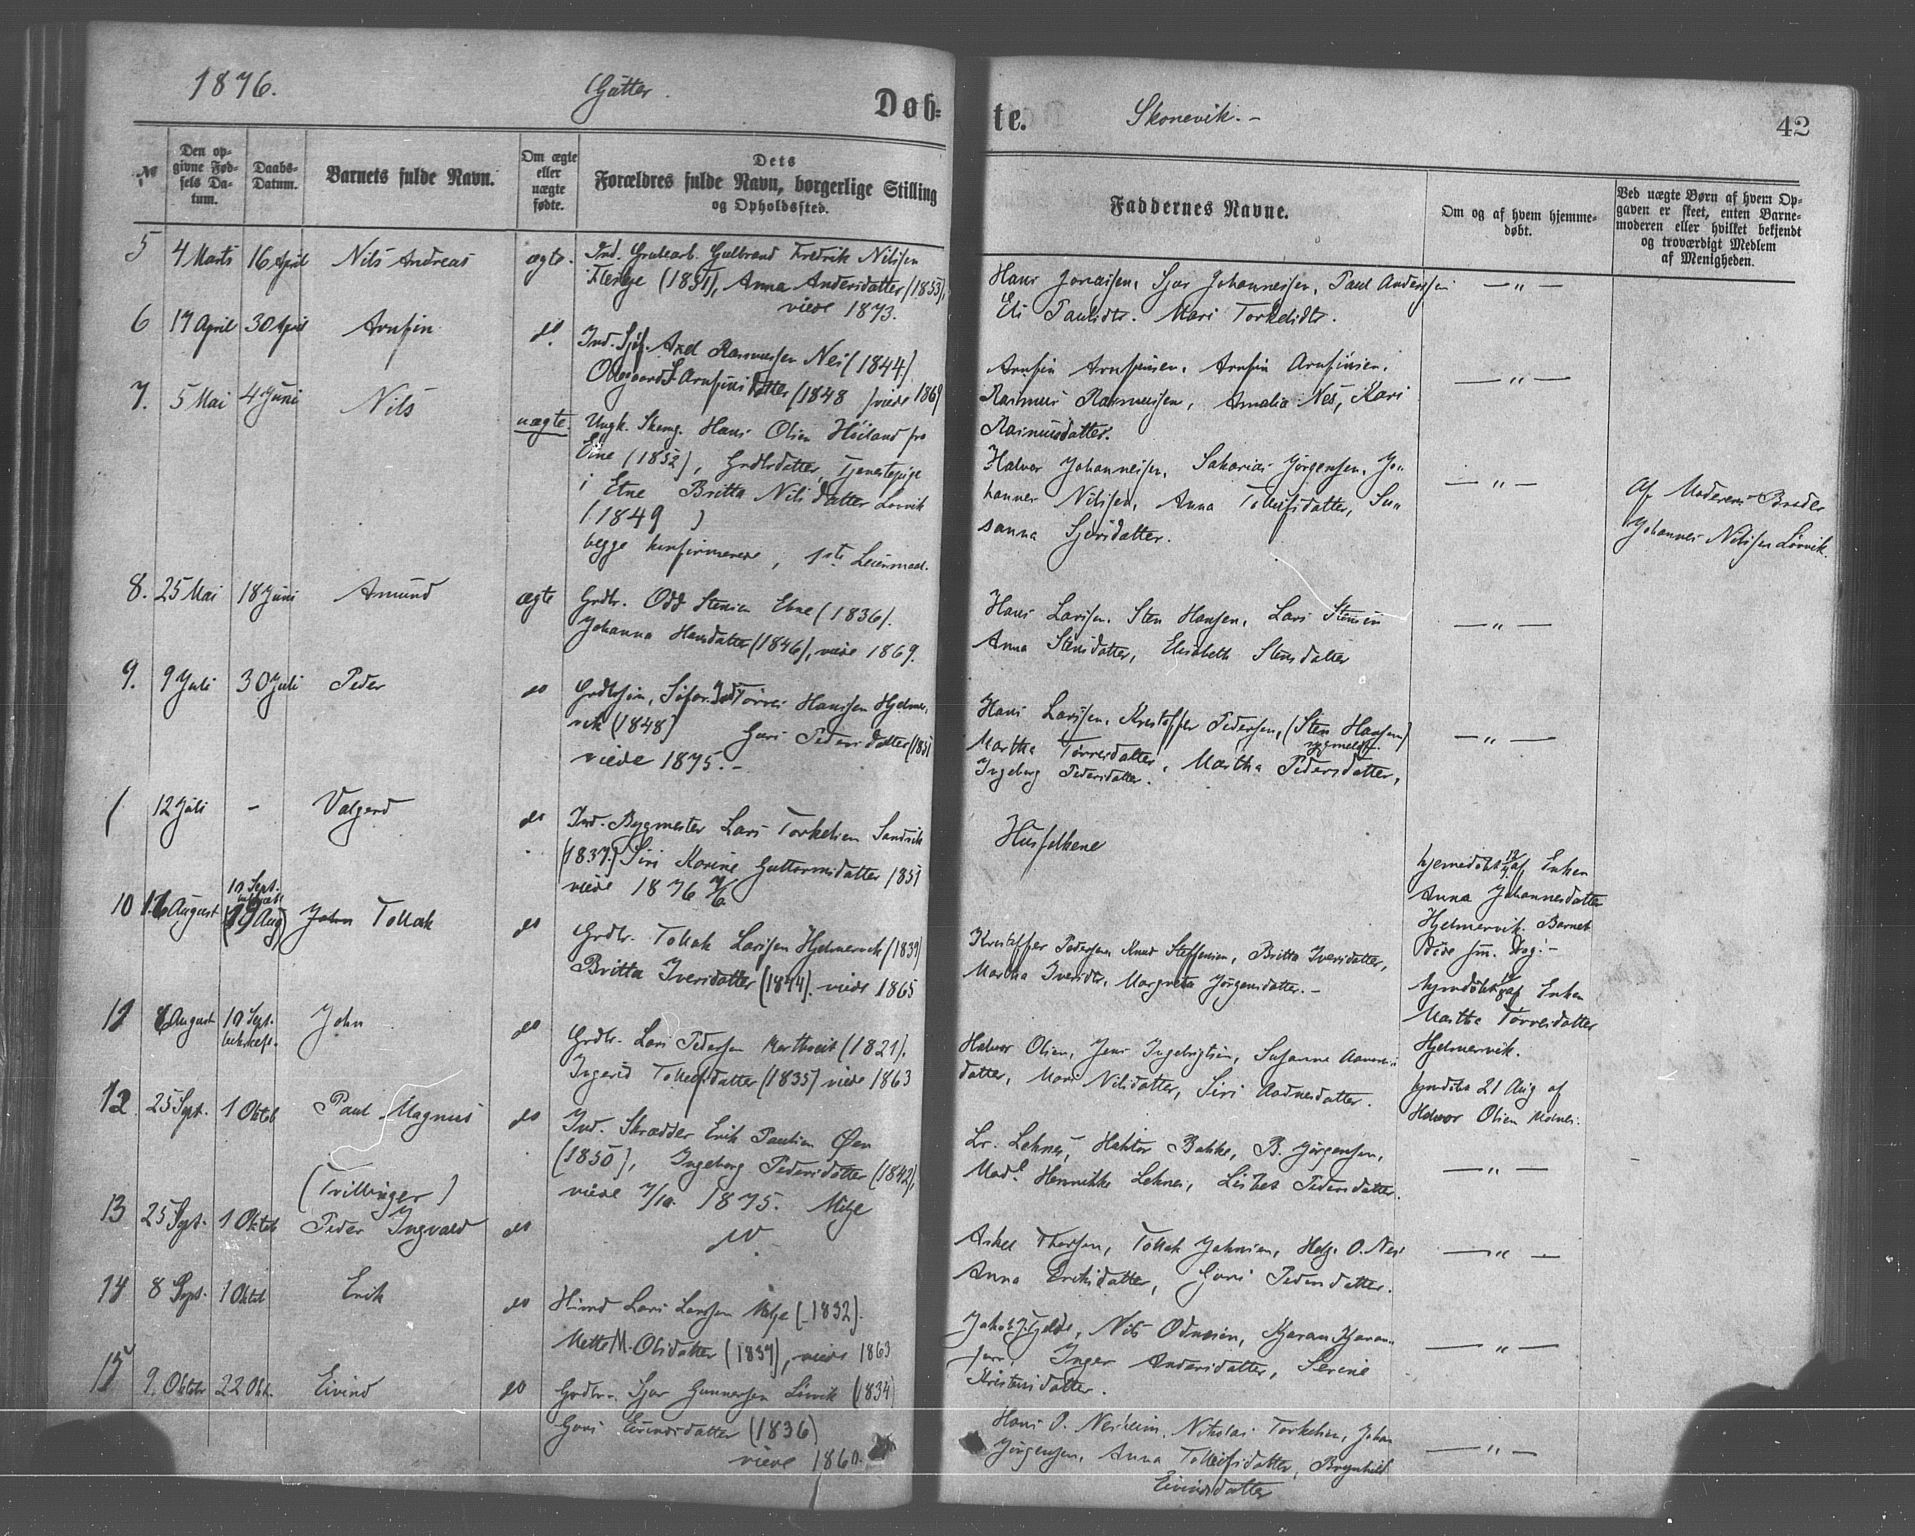 1876. Gutter. Døb-
te. Skonevik.- 42
№
Den op-
givne Fød-
sels Da-
tum.
Daabs-
Datum.
Barnets fulde Navn.
Om ægte
eller
uægte
fødte.
Dets
Forældres fulde Navn, borgerlige Stilling
og Opholdssted.
Faddernes Navne.
Om og af hvem hjemme-
døbt.
Ved uægte Børn af hvem Op-
gaven er skeet, enten Barne-
moderen eller hvilket bekjendt
og troværdigt Medlem
af Menigheden.
5 4 Marts 16 April Nils Andreas ægte.
Ind. Grubearb. Gulbrand Fredrik Nilsen
(1851), Anna Andersdatter (1853),
viede 1873.
Hans Jonassen, Sjur Johannessen, Paul Anderssen
Eli Paulsdtr. Mari Torkelsdtr.
— " —
6 17 April 30 April Arnfin do.
Ind. Axel Rasmussen Nes (1844)
Arnfinsdatter (1848) viede 1869
Arnfin Arnfinsen, Arnfin Arnfinsen,
Rasmus Rasmussen, Amalia Nes, Kari
Rasmusdatter.
— " —
7. 5 Mai 4 Juni Nils uægte.
Ungk. Hans Olsen Høiland fra
Etne (1852), Grdbrdatter, Tjenestepige
i Etne Britta Nilsdatter Løvvik
(1849)
begge konfirmerede, 1ste Leiermaal.
Halvor Johannessen, Sakarias Jørgensen, Jo-
hannes Nilsen, Anna Tollefsdatter, Su-
sanna Sjursdatter.
— " —
Af Moderens Broder
Johannes Nilssen Løvvik.
8. 25 Mai 18 Juni Amund ægte
Grdbr. Odd Stensen Ebne (1836).
Johanna Hansdatter (1846), viede 1869.
Hans Larssen, Sten Hansen, Lars Stensen
Anna Stensdatter, Elisabeth Stensdatter
— " —
9. 9 Juli 30 Juli Peder do
Grdbrsøn, Tørres Hanssen Hjelmer-
vik (1848) Guri Pedersdatter (1851
viede 1875.-
Hans Larssen, Kristoffer Pedersen, (Sten Hansen)
Martha Tørresdatter, Martha Pedersdatter,
Ingeborg Pedersdatter.
— " —
/ 12 Juli - Valgerd do
Ind. Bygmester Lars Torkelsen Sandvik
(1837) Siri Karine Guttormsdatter 1851
viede 1876
Husfolkene
hjemmedøbt af Enken
Anna Johannesdatter
Hjelmervik. Barnet
døde sm. Dag.-
10 16 August 10 Sept.
(19 Aug) John Tollak do
Grdbr. Tollak Larssen Hjelmervik (1839)
Britta Iversdatter (1844). viede 1865
Kristoffer Pedersen, Knud Steffensen, Britta Iversdatter,
Martha Iversdtr, Margreta Jørgensdatter.-
hjemdøbt af Enken
Martha Tørresdatter
Hjelmervik.
11 August 10 Sept.
bekræft. John do
Grdbr. Lars Pedersen (1821).
Ingerid Tollefsdatter (1835) viede 1863
Halvor Olsen, Jens Ingebrigtsen, Susanne
datter, Mari Nilsdatter, Siri Aadnesdatter.
hjemdøbt 21 Aug af
Halvor Olsen
12 25 Sept. 1 Oktob Paul Magnus do
Ind. Skrædder Erik Paulsen Øen
(1850), Ingeborg Pedersdatter (1842),
viede 7/10 1875. Milje
Lr. Leknes, Hektor Bakke, B. Jørgensen,
Mad. Henrikke Leknes, Lisbet Pedersdatter.
— " —
(Tvillinger)
13 25 Sept. 1 Oktob Peder Ingvald do
do
Askel Thorsen, Tollak Johnsen, Helge O. Nes
Anna Eriksdatter, Guri Pedersdatter.
— " —
14 8 Sept. 1 Oktob Erik do
Lars Larssen Milje (1832).
Mette M. Olsdatter (1837), viede 1863
Jakob Fjelde, Nils Odnesen, Kjaran Kjaran-
sen, Inger Andersdatter, Serine
Kristensdatter.
— " —
15 9. Oktobr 22 Okt. Eivind do
Grdbr. Sjur Gunnarsen Løvvik (1834)
Guri Eivindsdatter (1836)
viede 1860.
Hans O. Nesheim, Nikolai Torkelsen, Johan
Jørgensen, Anna Tollefsdatter, Brynhild
Eivindsdatter
— " —